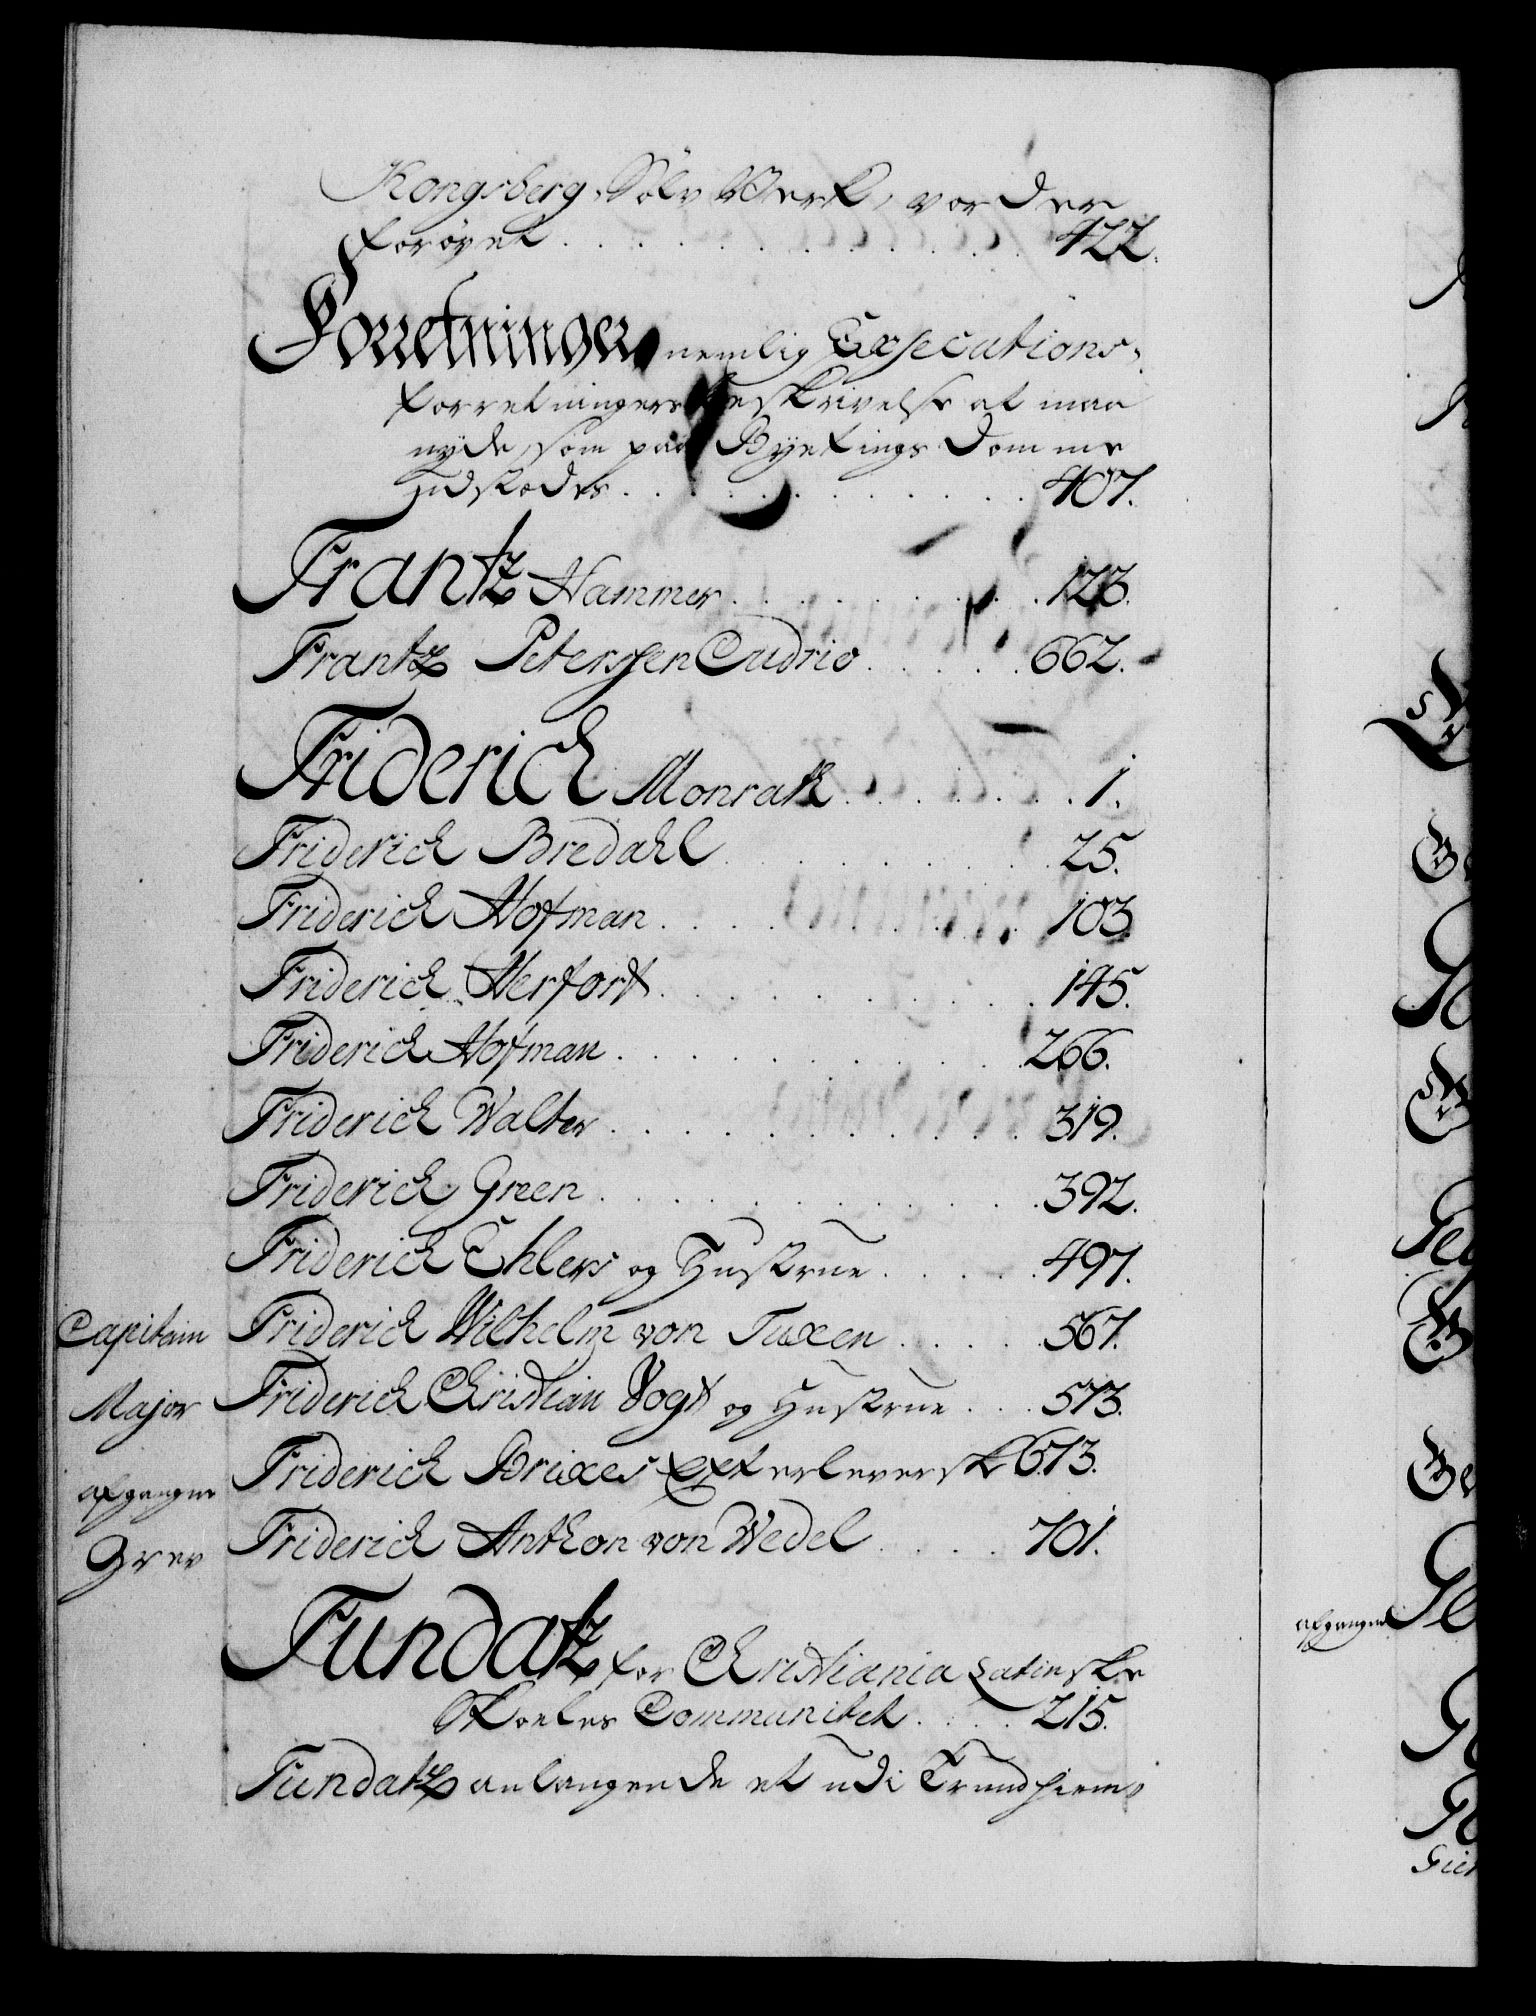 Kongsberg Sölv Werk, vorder
forøvet . . . 422.
Forretninger, nemlig Executions-
forretningers beskrivelse at maa
nyde, som paa Byetings Domme
udstædes . . . 407.
Frantz Hammer . . . 123.
Frantz Peterssen Cudrio . . . 662.
Friderich Monrath . . . 1.
Friderich Bredahl . . . 25.
Friderich Hofman . . . 103.
Friderich Herfort . . . 145.
Friderich Hofman . . . 266.
Friderich Walter . . . 319.
Friderich Green . . . 392.
Friderich Ehlers og Hustrue . . . 497.
Capitain Friderich Wilhelm von Tuxen . . . 567.
Major Friderich Christian Vogt og Hustrue . . . 573.
afgangne Friderich Brixes Efterleversk 673.
Grev Friderich Anthon von Wedel . . . 701.
Fundatz for Christiania Latinske
Skoeles Communitet . . . 215.
Fundatz anlangende et udi Trundhiems
afgangne